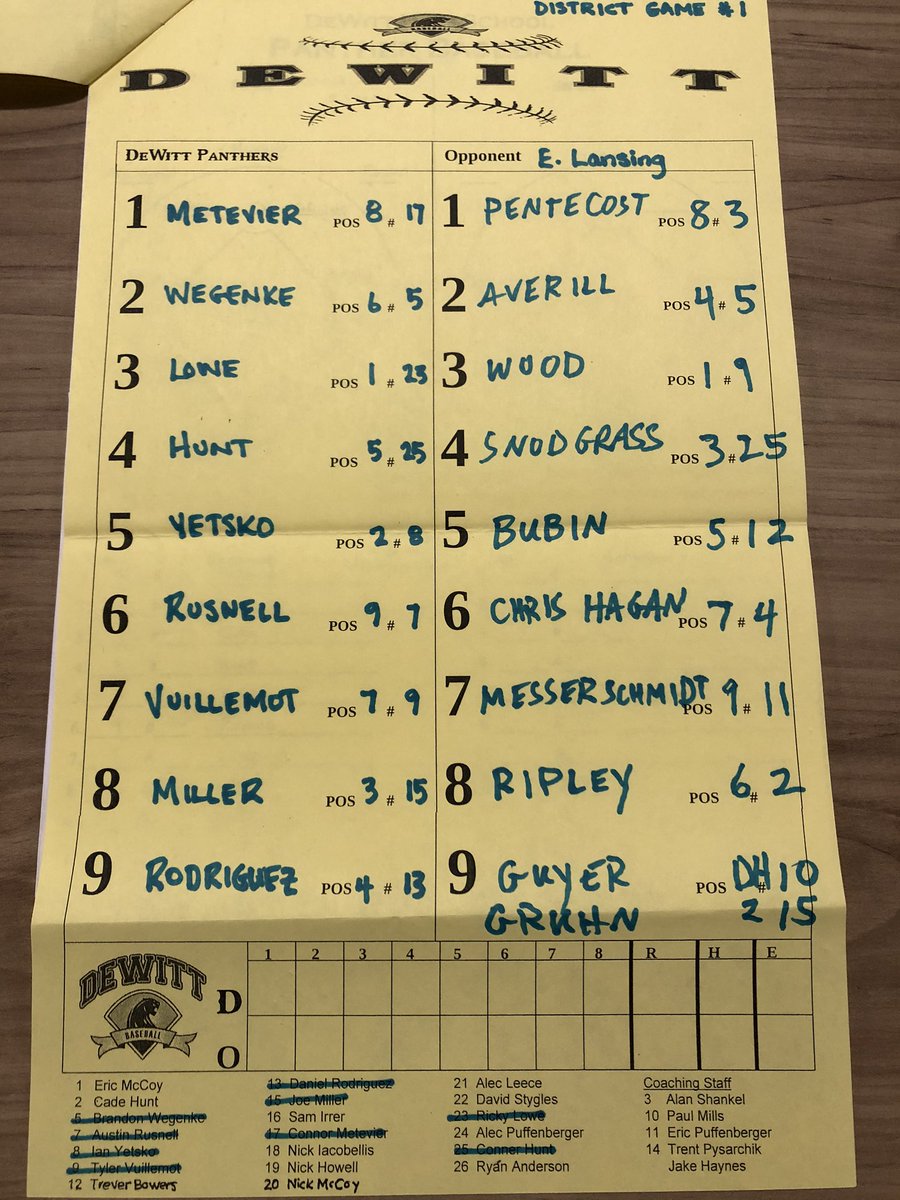 DISTRICT GAME #1
DEWITT
DEWITT PANTHERS
Opponent E. Lansing
1 METEVIER POS 8 # 17
1 PENTECOST POS 8 # 3
2 WEGENKE POS 6 # 5
2 AVERILL POS 4 # 5
3 LOWE POS 1 # 23
3 WOOD POS 1 # 9
4 HUNT POS 5 # 25
4 SNODGRASS POS 3 # 25
5 YETSKO POS 2 # 8
5 BUBIN POS 5 # 12
6 RUSNELL POS 9 # 7
6 CHRIS HAGAN POS 7 # 4
7 VUILLEMOT POS 7 # 9
7 MESSERSCHMIDT POS 9 # 11
8 MILLER POS 3 # 15
8 RIPLEY POS 6 # 2
9 RODRIGUEZ POS 4 # 13
9 GUYER POS DH # 10
GRUHN 2 15
DEWITT
BASEBALL
1 2 3 4 5 6 7 8 R H E
D
O
1 Eric McCoy
2 Cade Hunt
5 Brandon Wegenke
7 Austin Rusnell
8 Ian Yetsko
9 Tyler Vuillemot
12 Trever Bowers
13 Daniel Rodriguez
15 Joe Miller
16 Sam Irrer
17 Connor Metevier
18 Nick Iacobellis
19 Nick Howell
20 Nick McCoy
21 Alec Leece
22 David Stygles
23 Ricky Lowe
24 Alec Puffenberger
25 Conner Hunt
26 Ryan Anderson
Coaching Staff
3 Alan Shankel
10 Paul Mills
11 Eric Puffenberger
14 Trent Pysarchik
Jake Haynes